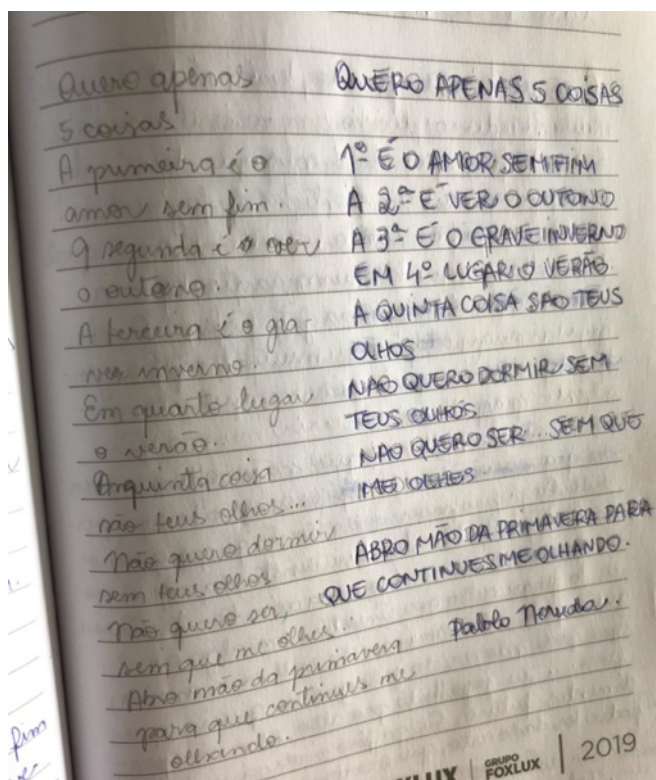 Quero apenas
5 coisas
A primeira é o
amor sem fim.
A segunda é o ver
o outono.
A terceira é o gra-
ve inverno.
Em quarto lugar
o verão.
A quinta coisa
são teus olhos...
Não quero dormir
sem teus olhos
Não quero ser,
sem que me olhes.
Abro mão da primavera
para que continues me
olhando.
QUERO APENAS 5 COISAS
1º É O AMOR SEM FIM
A 2ª É VER O OUTONO
A 3ª É O GRAVE INVERNO
EM 4º LUGAR O VERÃO.
A QUINTA COISA SAO TEUS
OLHOS
NAO QUERO DORMIR SEM
TEUS OLHOS.
NAO QUERO SER... SEM QUE
ME OLHES
ABRO MÃO DA PRIMAVERA PARA
QUE CONTINUES ME OLHANDO.
Pablo Neruda.
fim
GRUPO
FOXLUX
2019